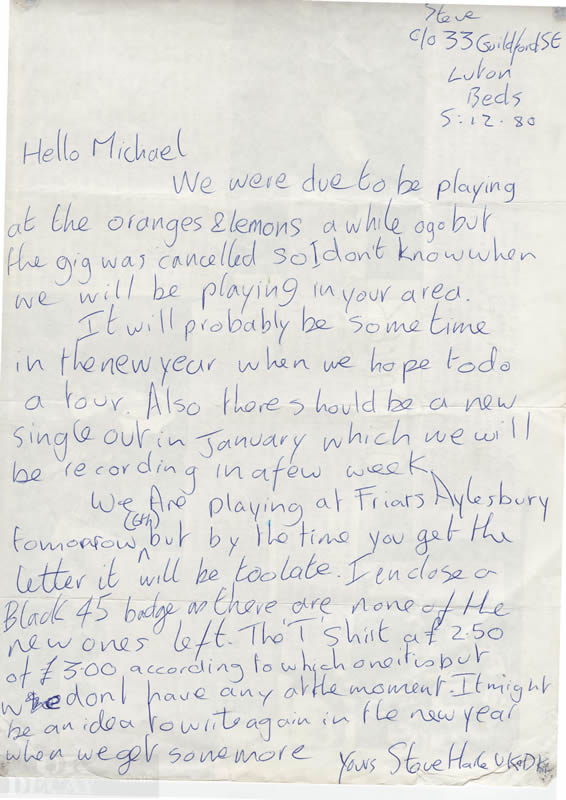 Steve
c/o 33 Guildford St
Luton
Beds
5.12.80
Hello Michael
We were due to be playing
at the oranges & lemons a while ago but
the gig was cancelled so I don't know when
we will be playing in your area.
It will probably be sometime
in the new year when we hope to do
a tour. Also there should be a new
single out in January which we will
be recording in a few week
We Are playing at Friars Aylesbury
(6th)
tomorrow ^ but by the time you get the
letter it will be too late. I enclose a
Black 45 badge as there are none of the
new ones left. The 'T' Shirt a £2.50
of £3.00 according to which one it is but
we dont have any at the moment. It might
be an idea to write again in the new year
when we get some more
Yours Steve UK
DECAY